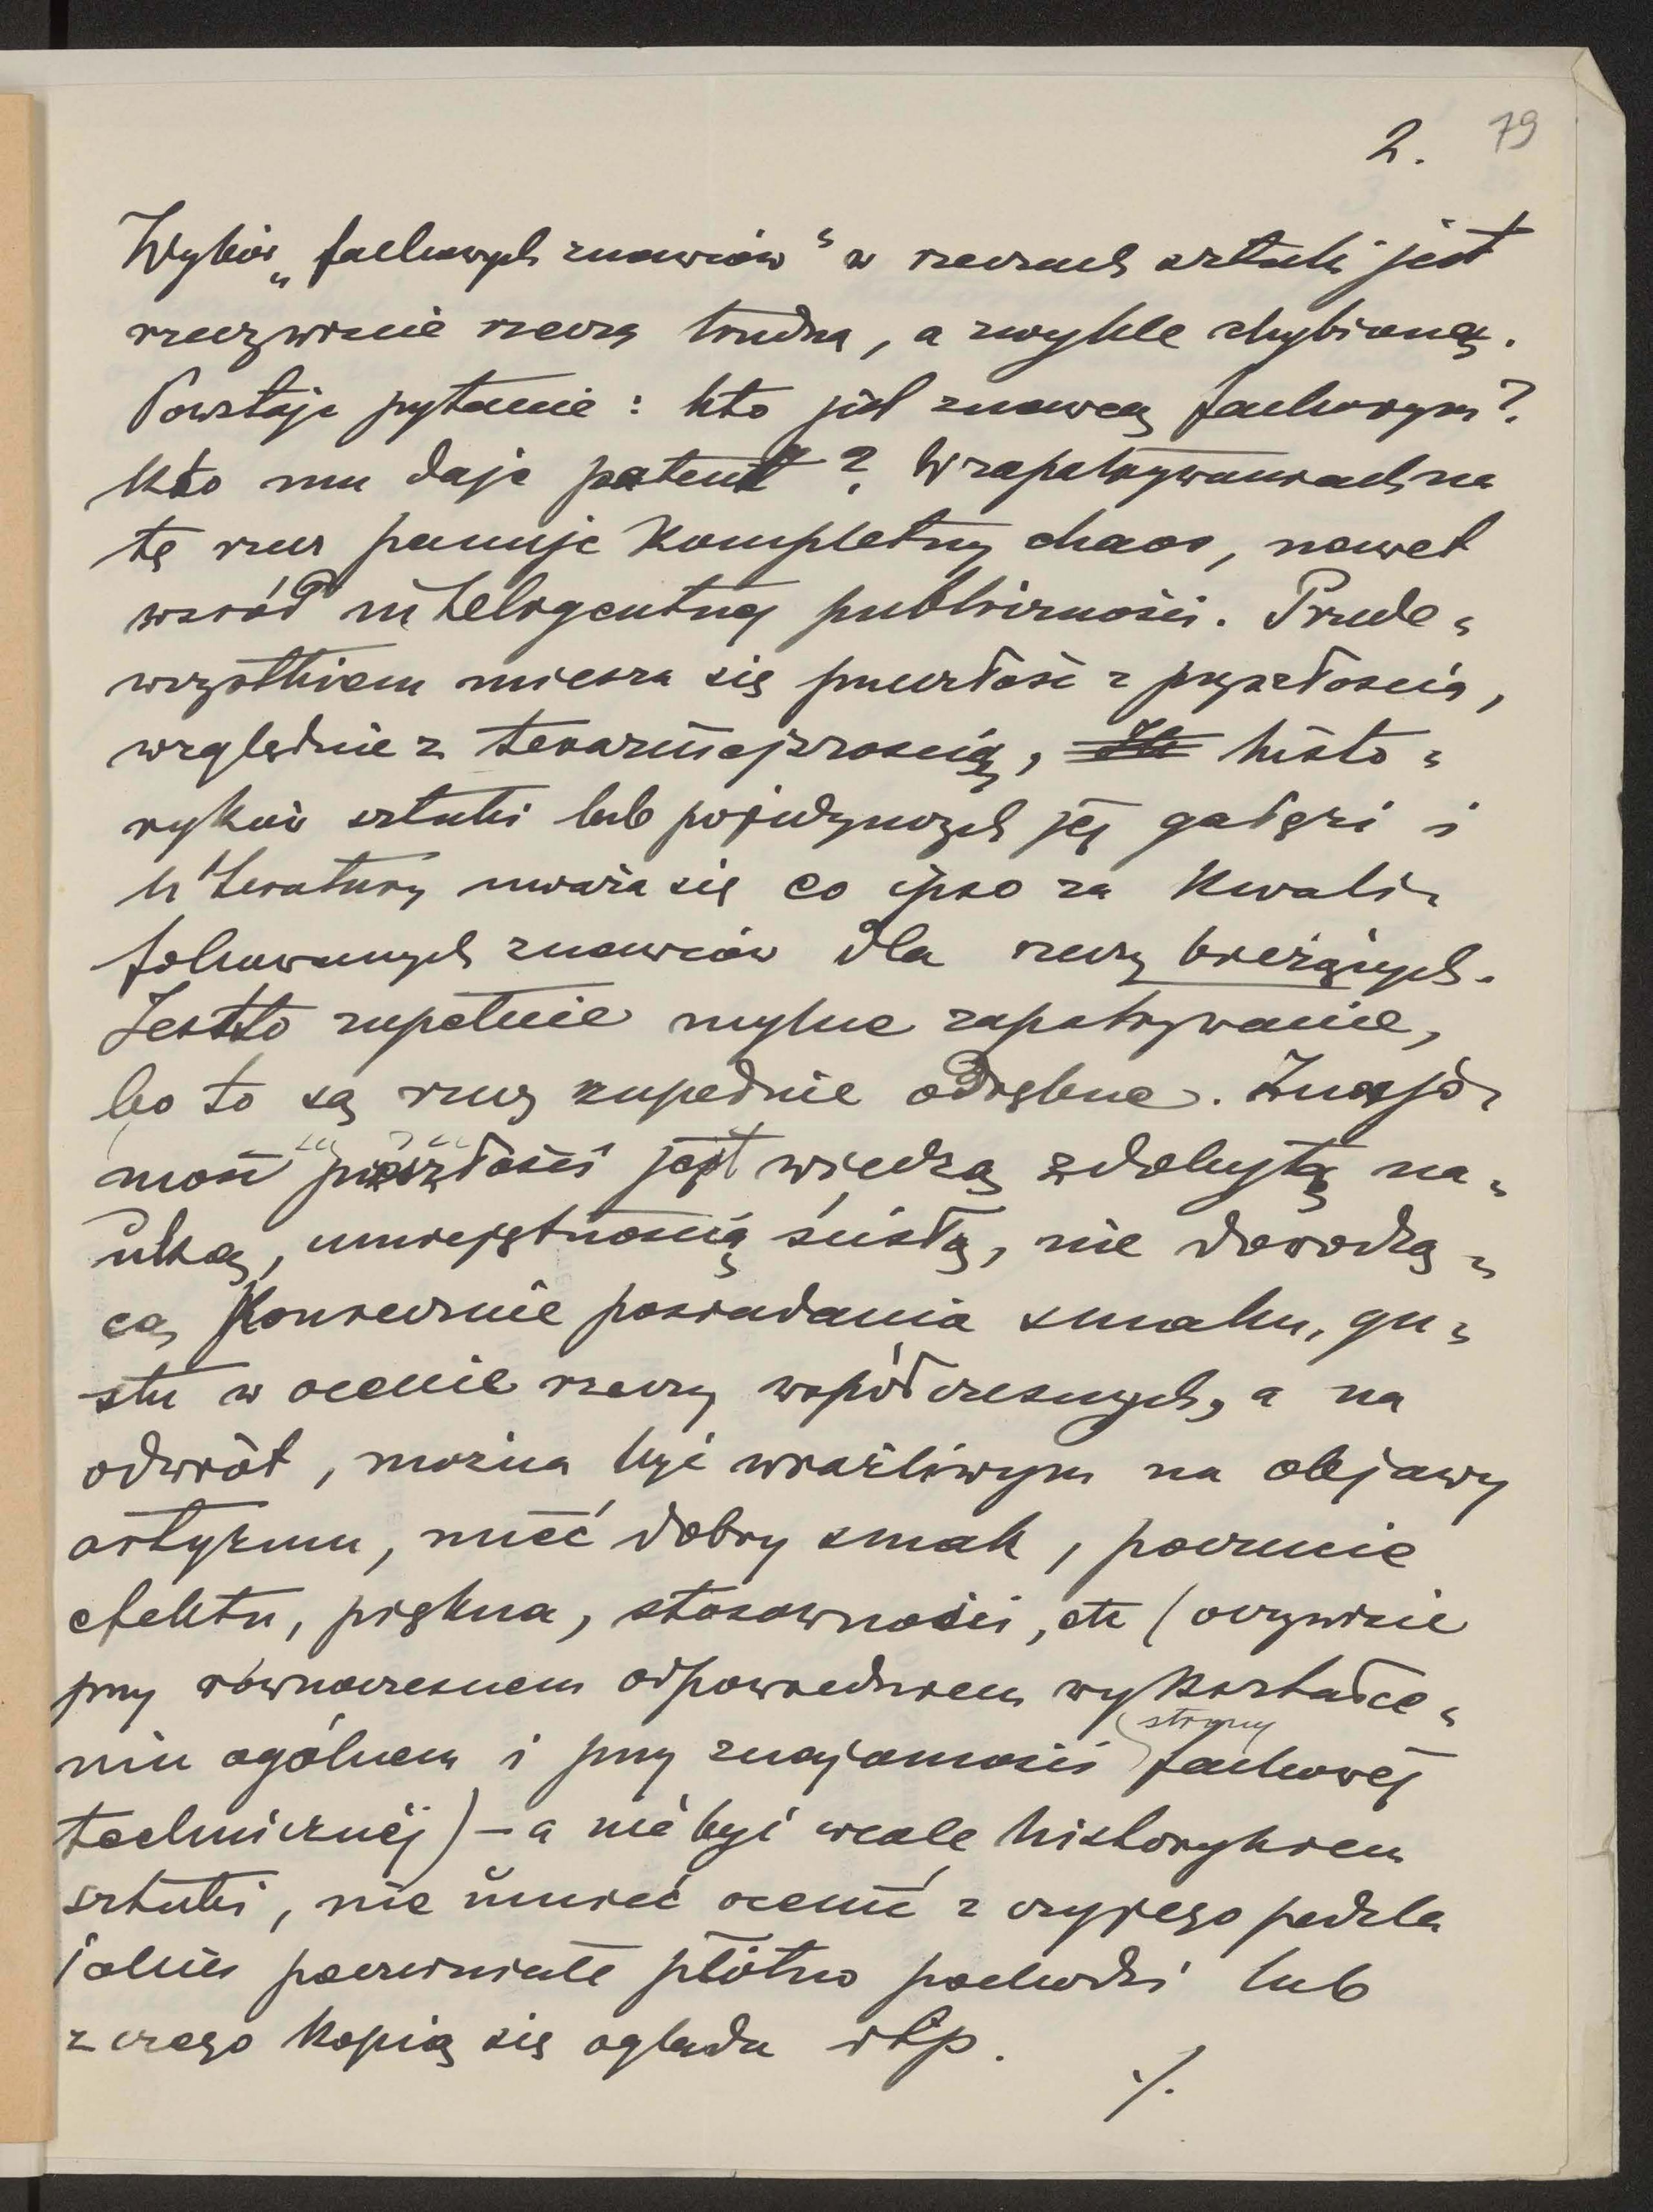 2. 79
Wybór „fachowych znawców" w rzeczach sztuki jest
rzeczywiście rzeczą trudną, a zwykle chybioną.
Powstaje pytanie: kto jest znawcą fachowym?
Kto mu daje patent? W zapatrywaniach na
tę rzecz panuje kompletny chaos, nawet
wśród inteligentnej publiczności. Przede=
wszystkiem miesza się przeszłość z przyszłością,
względnie z teraźniejszością, histo=
ryków sztuki lub pojedynczych jej gałęzi i
literatury uważa się eo ipso za kwali=
fikowanych znawców dla rzeczy bieżących.
Jestto zupełnie mylne zapatrywanie,
bo to są rzeczy zupełnie odrębne. Znajo=
mość przeszłości jest wiedzą zdobytą na=
uką, umiejętnością ścisłą, nie dowodzą=
cą koniecznie posiadania smaku, gu=
stu w ocenie rzeczy współczesnych, a na
odwrót, można być wrażliwym na objawy
artyzmu, mieć dobry smak, poczucie
efektu, piękna, stosowności, etc (oczywiście
przy równoczesnem odpowiedniem wykształce=
niu ogólnem i przy znajomości strony fachowej
technicznej) – a nie być wcale historykiem
sztuki, nie umieć ocenić z czyjego pędzla
jakieś poczerniałe płótno pochodzi lub
z czego kopią się ogląda itp.
./.